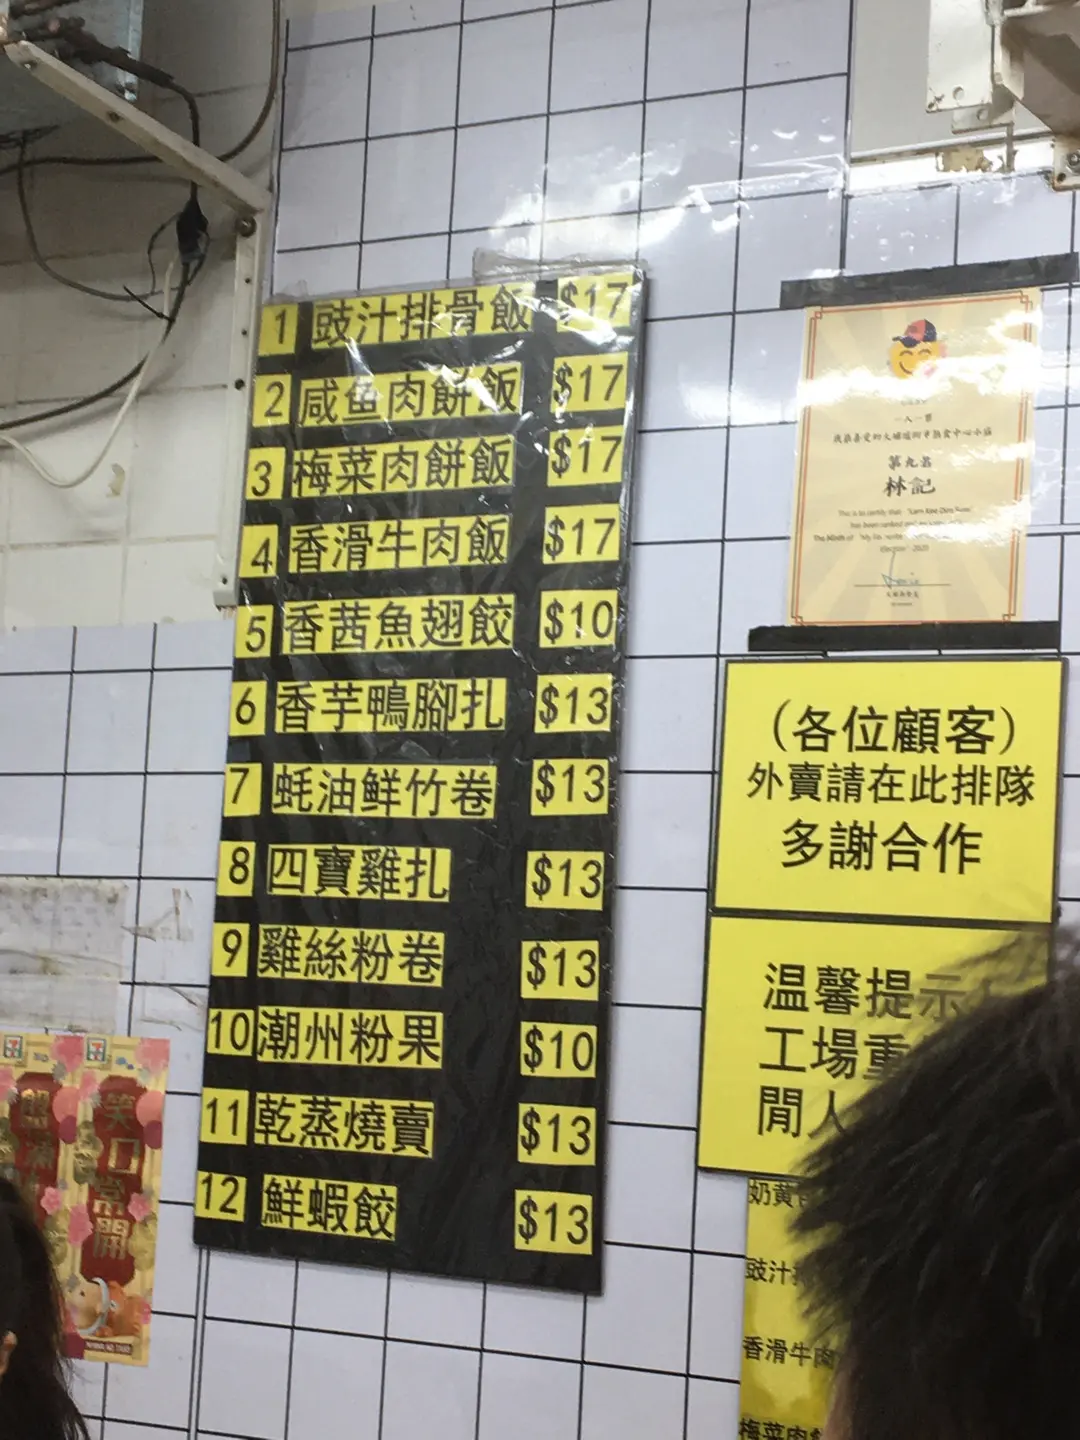 1 豉汁排骨飯 $17
2 咸鱼肉餅飯 $17
3 梅菜肉餅飯 $17
4 香滑牛肉飯 $17
5 香茜魚翅餃 $10
6 香芋鴨腳扎 $13
7 蚝油鲜竹卷 $13
8 四寶雞扎 $13
9 雞絲粉卷 $13
10 潮州粉果 $10
11 乾蒸燒賣 $13
12 鮮蝦餃 $13
一人一票
我最喜愛的大埔墟街市熟食中心小店
第九名
林記
This is to certify that "Lam Kee Dim Sum"
has been ranked
The Ninth of "My Favorite
Election" 2020
(各位顧客)
外賣請在此排隊
多謝合作
温馨提示
工場重
閒人
奶黄
豉汁排
香滑牛肉
梅菜肉
笑口常開